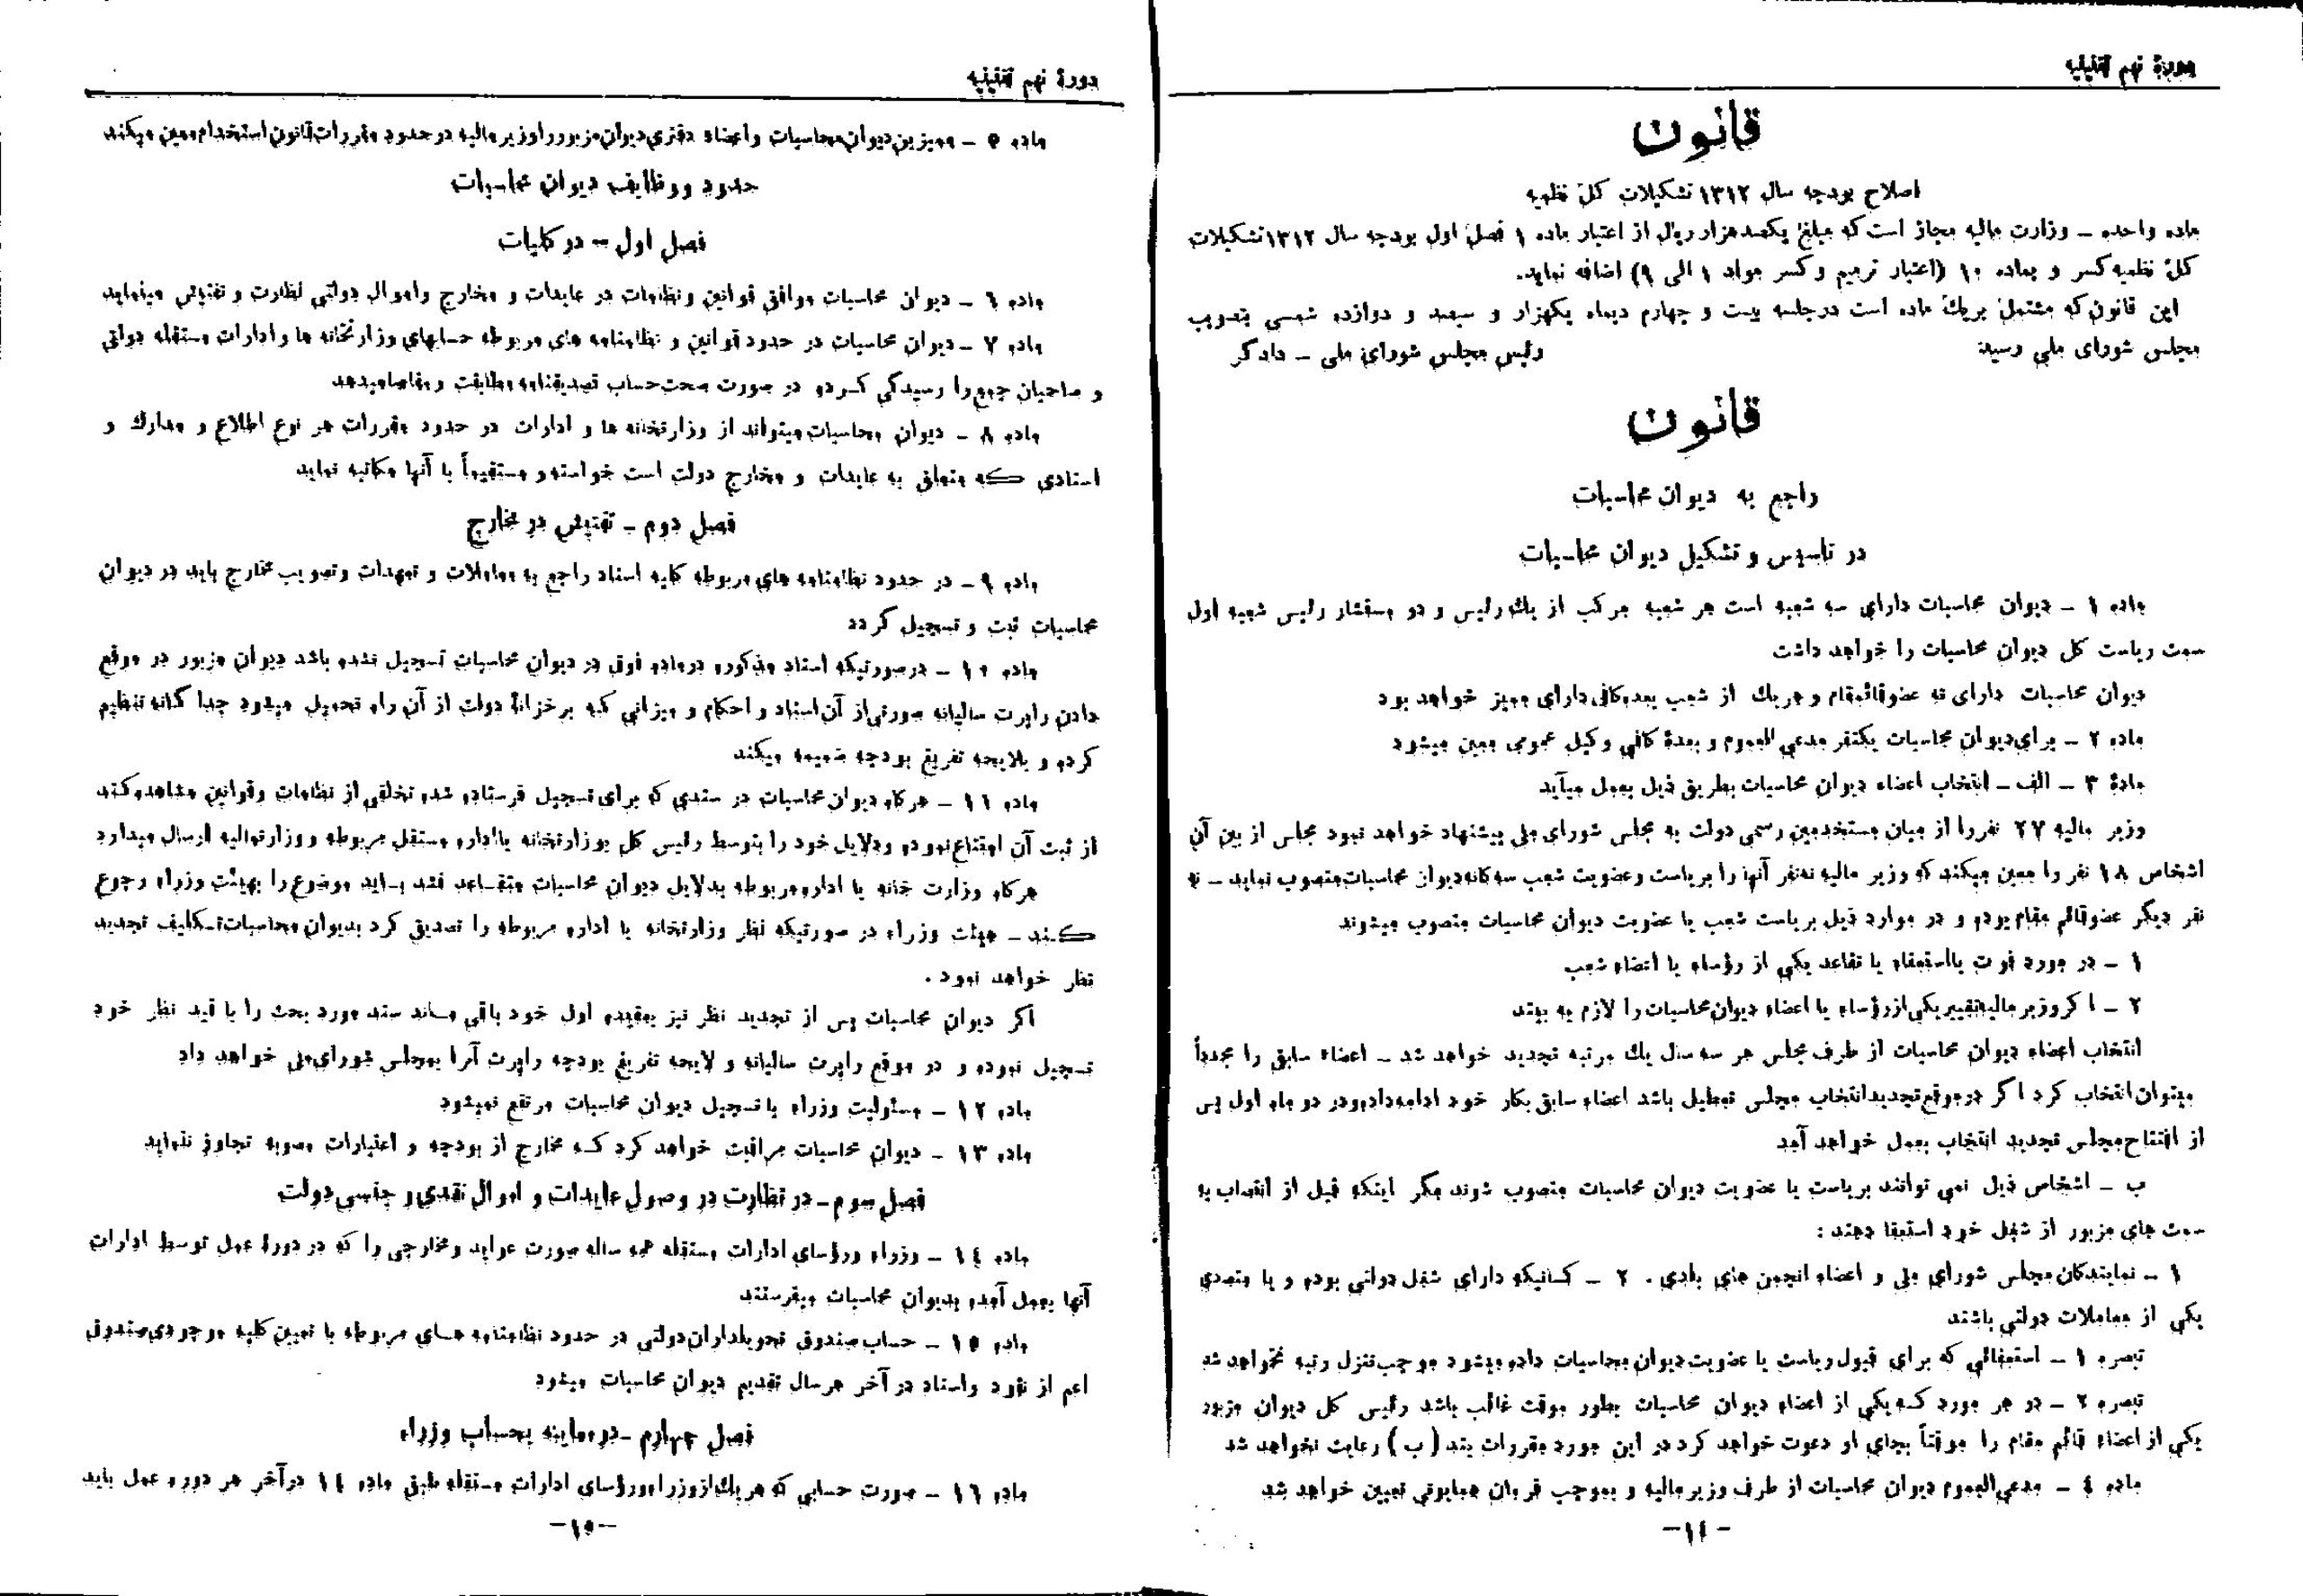 دورهٔ نهم تقنینیه
قانون
اصلاح بودجه سال ۱۳۱۲ تشکیلات کل نظمیه
ماده واحده ـ وزارت مالیه مجاز است که مبلغ یکصد هزار ریال از اعتبار ماده ۱ فصل اول بودجه سال ۱۳۱۲ تشکیلات
کل نظمیه کسر و بماده ۱۰ (اعتبار ترمیم و کسر مواد ۱ الی ۹) اضافه نماید.
این قانون که مشتمل بریك ماده است درجلسه بیست و چهارم دیماه یکهزار و سیصد و دوازده شمسی بتصویب
مجلس شورای ملی رسید رئیس مجلس شورای ملی ـ دادگر
قانون
راجع به دیوان محاسبات
در تاسیس و تشکیل دیوان محاسبات
ماده ۱ ـ دیوان محاسبات دارای سه شعبه است هر شعبه مرکب از یك رئیس و دو مستشار رئیس شعبه اول
سمت ریاست کل دیوان محاسبات را خواهد داشت
دیوان محاسبات دارای نه عضو قائممقام و هریك از شعب بعده کافی دارای ممیز خواهد بود
ماده ۲ ـ برای دیوان محاسبات یکنفر مدعی العموم و بعدهٔ کافی وکیل عمومی معین میشود
مادهٔ ۳ ـ الف ـ انتخاب اعضاء دیوان محاسبات بطریق ذیل بعمل میآید
وزیر مالیه ۲۷ نفر را از میان مستخدمین رسمی دولت به مجلس شورای ملی پیشنهاد خواهد نمود مجلس از بین آن
اشخاص ۱۸ نفر را معین میکند که وزیر مالیه نه نفر آنها را بریاست و عضویت شعب سه گانه دیوان محاسبات منصوب نماید ـ نه
نفر دیگر عضو قائم مقام بوده و در موارد ذیل بریاست شعب یا عضویت دیوان محاسبات منصوب میشوند
۱ ـ در مورد فوت یا استعفاء یا تقاعد یکی از رؤساء یا اعضاء شعب
۲ ـ اگر وزیر مالیه تغییر یکی از رؤساء یا اعضاء دیوان محاسبات را لازم به بیند
انتخاب اعضاء دیوان محاسبات از طرف مجلس هر سه سال یك مرتبه تجدید خواهد شد ـ اعضاء سابق را مجدداً
میتوان انتخاب کرد اگر درموقع تجدید انتخاب مجلس تعطیل باشد اعضاء سابق بکار خود ادامه داده ودر دو ماه اول پس
از افتتاح مجلس تجدید انتخاب بعمل خواهد آمد
ب ـ اشخاص ذیل نمی توانند بریاست یا عضویت دیوان محاسبات منصوب شوند مگر اینکه قبل از انتصاب به
سمت های مزبور از شغل خود استعفا دهند :
۱ ـ نمایندگان مجلس شورای ملی و اعضاء انجمن های بلدی . ۲ ـ کسانیکه دارای شغل دولتی بوده و یا متصدی
یکی از معاملات دولتی باشند
تبصره ۱ ـ استعفائی که برای قبول ریاست یا عضویت دیوان محاسبات داده میشود موجب تنزل رتبه نخواهد شد
تبصره ۲ ـ در هر مورد که یکی از اعضاء دیوان محاسبات بطور موقت غائب باشد رئیس کل دیوان مزبور
یکی از اعضاء قائم مقام را موقتاً بجای او دعوت خواهد کرد در این مورد مقررات بند (ب) رعایت نخواهد شد
ماده ٤ ـ مدعی العموم دیوان محاسبات از طرف وزیر مالیه و بموجب فرمان همایونی تعیین خواهد شد
–۱٤–
دورهٔ نهم تقنینیه
ماده ٥ ـ ممیزین دیوان محاسبات و اعضاء دفتری دیوان مزبور را وزیر مالیه در حدود مقررات قانون استخدام معین میکند
حدود و وظایف دیوان محاسبات
فصل اول – در کلیات
ماده ٦ ـ دیوان محاسبات موافق قوانین و نظامات در عایدات و مخارج و اموال دولتی نظارت و تفتیش مینماید
ماده ۷ ـ دیوان محاسبات در حدود قوانین و نظامنامه های مربوطه حسابهای وزارتخانه ها و ادارات مستقله دولتی
و صاحبان جمع را رسیدگی کرده در صورت صحت حساب تصدیقنامه مطابقت و مفاصا میدهد
ماده ۸ ـ دیوان محاسبات میتواند از وزارتخانه ها و ادارات در حدود مقررات هر نوع اطلاع و مدارك و
اسنادی که متعلق به عایدات و مخارج دولت است خواسته و مستقیماً با آنها مکاتبه نماید
فصل دوم ـ تفتیش در مخارج
ماده ۹ ـ در حدود نظامنامه های مربوطه کلیه اسناد راجع به معاملات و تعهدات و تصویب مخارج باید در دیوان
محاسبات ثبت و تسجیل گردد
ماده ۱۰ ـ درصورتیکه اسناد مذکوره درماده فوق در دیوان محاسبات تسجیل نشده باشد دیوان مزبور در موقع
دادن راپرت سالیانه صورتی از آن اسناد و احکام و میزانی که بر خزانهٔ دولت از آن راه تحمیل میشود جدا گانه تنظیم
کرده و بلایحه تفریغ بودجه ضمیمه میکند
ماده ۱۱ ـ هرگاه دیوان محاسبات در سندی که برای تسجیل فرستاده شده تخلفی از نظامات و قوانین مشاهده کند
از ثبت آن امتناع نموده و دلایل خود را بتوسط رئیس کل بوزارتخانه یا اداره مستقل مربوطه و وزارتمالیه ارسال میدارد
هرگاه وزارت خانه یا اداره مربوطه بدلایل دیوان محاسبات متقاعد نشد باید موضوع را بهیئت وزراء رجوع
کند ـ هیئت وزراء در صورتیکه نظر وزارتخانه یا اداره مربوطه را تصدیق کرد بدیوان محاسبات تکلیف تجدید
نظر خواهد نمود .
اگر دیوان محاسبات پس از تجدید نظر نیز بعقیده اول خود باقی ماند سند مورد بحث را با قید نظر خود
تسجیل نموده و در موقع راپرت سالیانه و لایحه تفریغ بودجه راپرت آنرا بمجلس شورای ملی خواهد داد
ماده ۱۲ ـ مسئولیت وزراء با تسجیل دیوان محاسبات مرتفع نمیشود
ماده ۱۳ ـ دیوان محاسبات مراقبت خواهد کرد که مخارج از بودجه و اعتبارات مصوبه تجاوز ننماید
فصل سوم ـ در نظارت در وصول عایدات و اموال نقدی و جنسی دولت
ماده ۱٤ ـ وزراء ورؤسای ادارات مستقله همه ساله صورت عواید و مخارجی را که در دورهٔ عمل توسط ادارات
آنها بعمل آمده بدیوان محاسبات میفرستند
ماده ۱٥ ـ حساب صندوق تحویلداران دولتی در حدود نظامنامه های مربوطه با تعیین کلیه موجودی صندوق
اعم از نقود و اسناد در آخر هر سال تقدیم دیوان محاسبات میشود
فصل چهارم ـ در معاینه بحساب وزراء
ماده ۱٦ ـ صورت حسابی که هریك از وزراء و رؤسای ادارات مستقله طبق ماده ۱٤ در آخر هر دوره عمل باید
–۱٥–